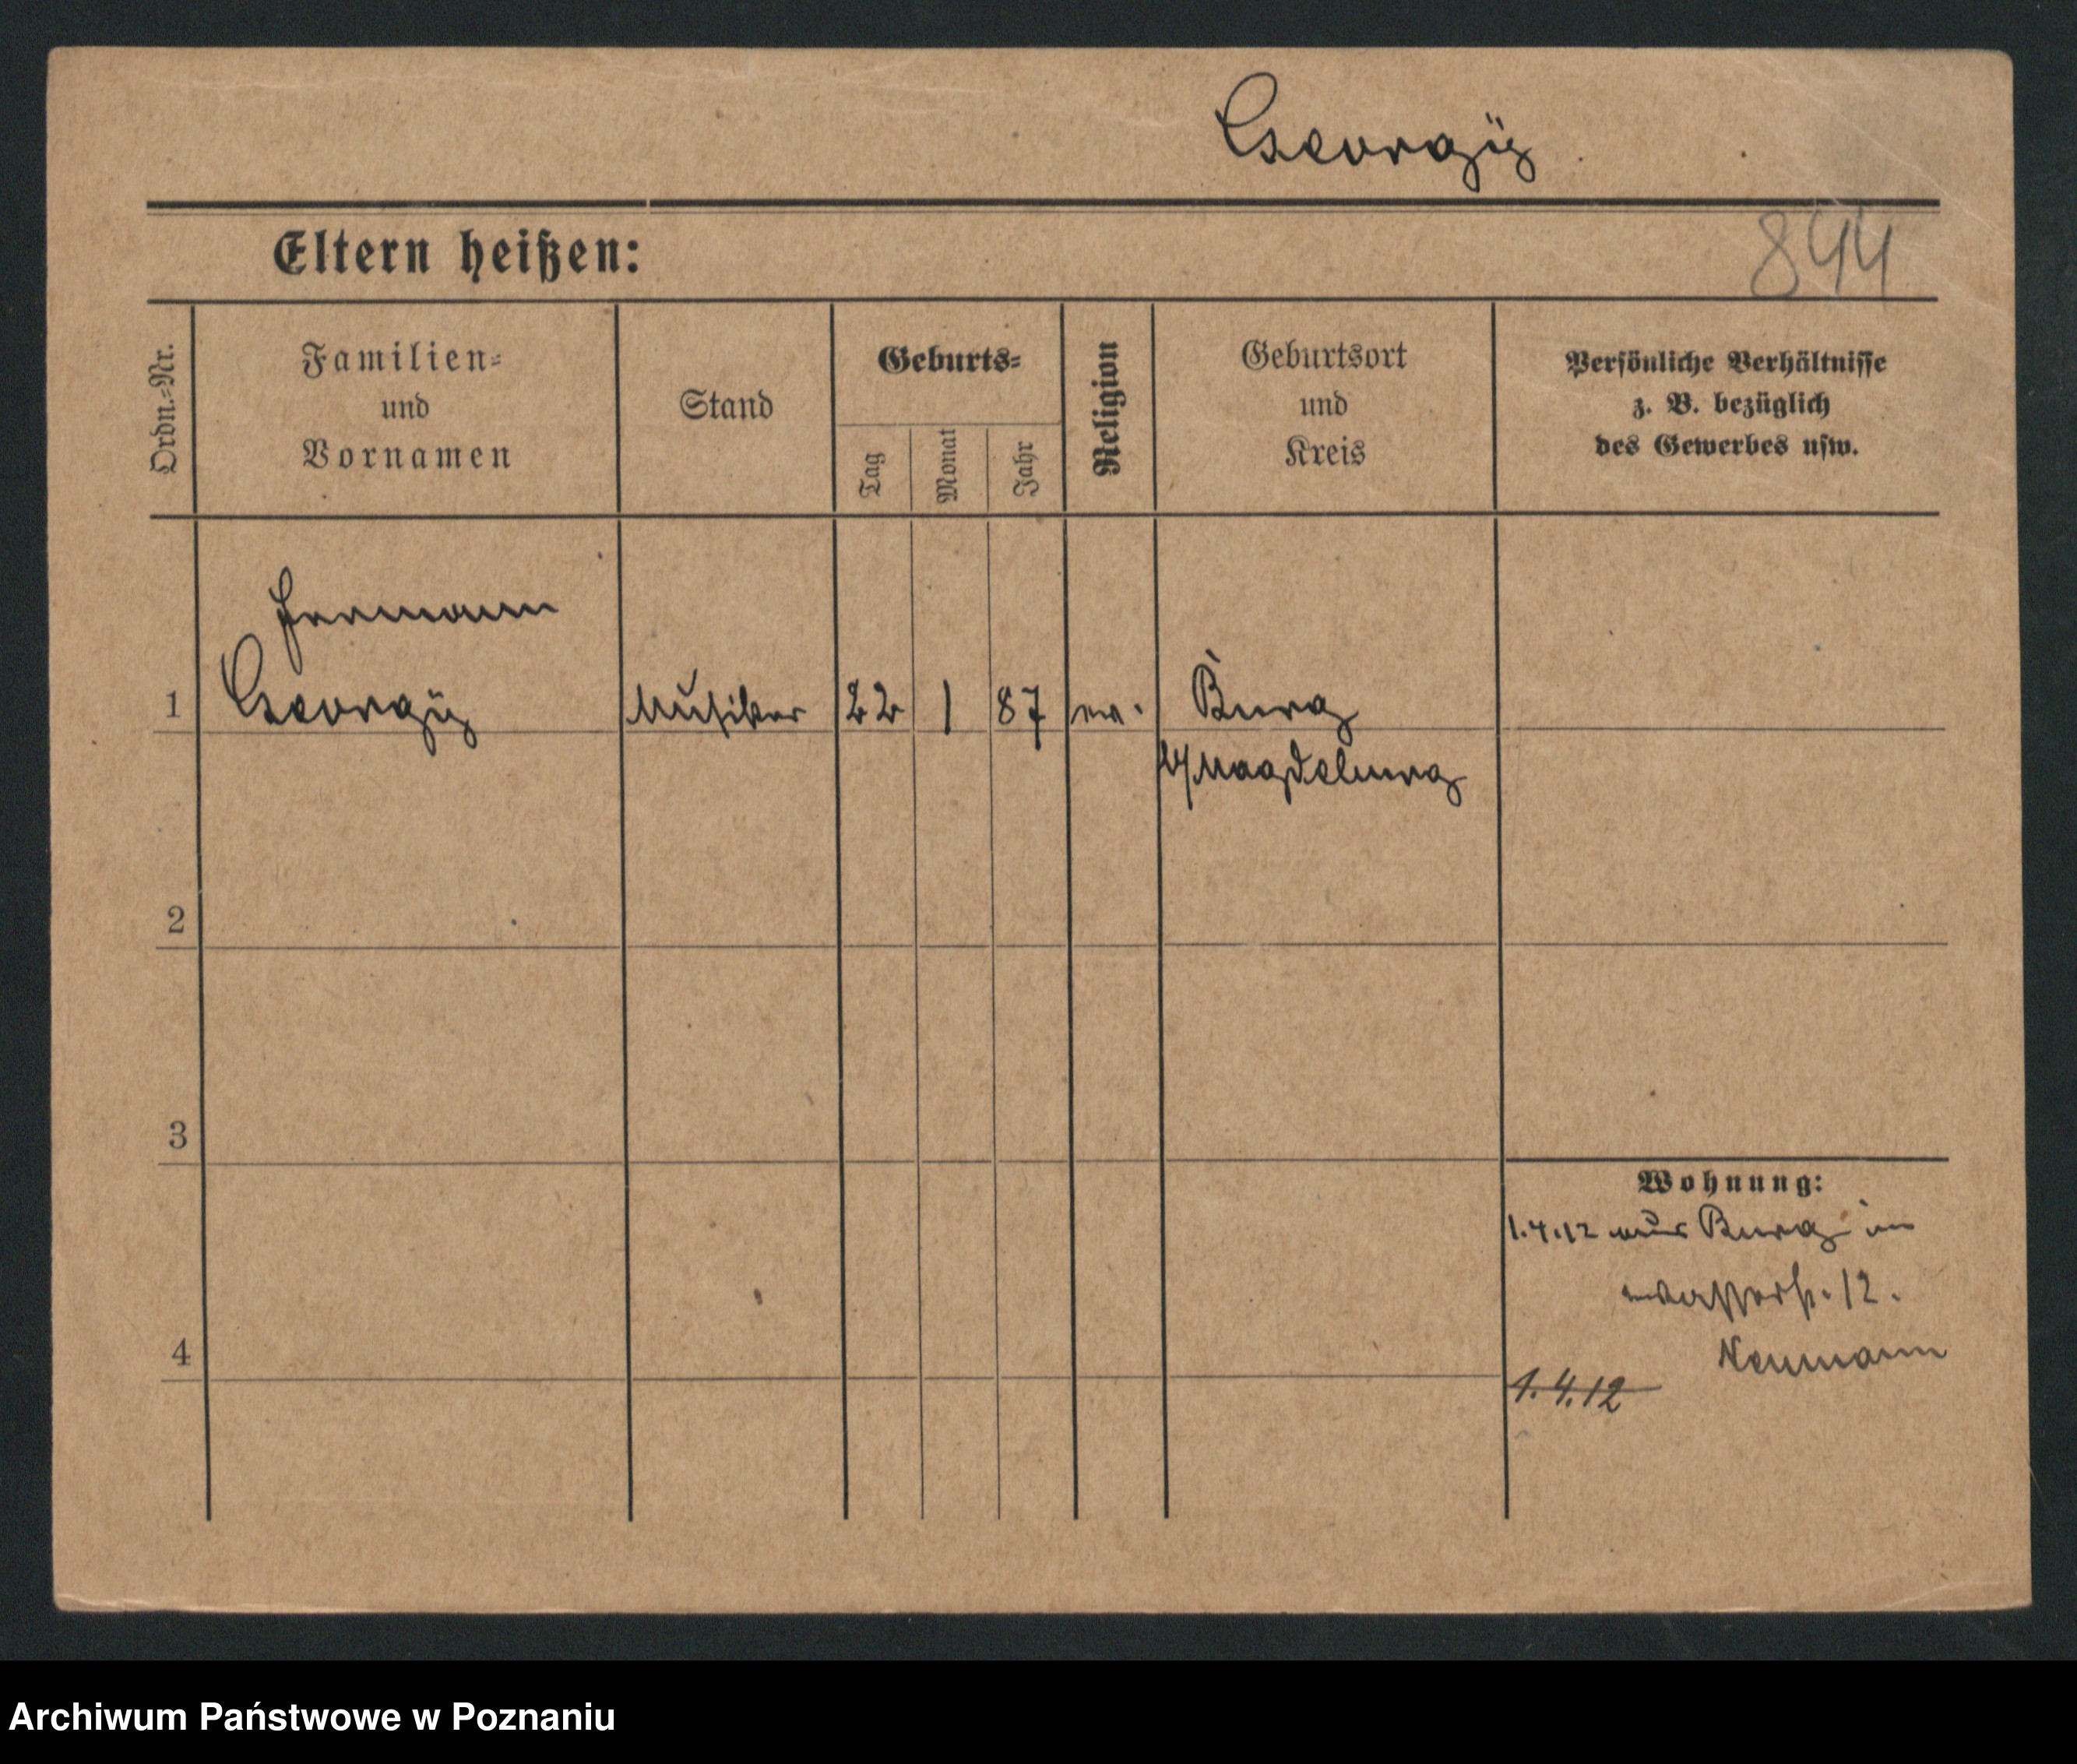 Georgÿ
Eltern heißen:
844
Ordn.-Nr.
Familien-
und
Vornamen
Stand
Geburts-
Tag
Monat
Jahr
Religion
Geburtsort
und
Kreis
Persönliche Verhältnisse
z. B. bezüglich
des Gewerbes usw.
Hermann
1 Georgÿ Musiker 22 1 87 ev. Burg
b/Magdeburg
2
3
4
Wohnung:
1.4.12 aus Burg in
Wasserstr. 12.
Neumann
1.4.12
Archiwum Państwowe w Poznaniu